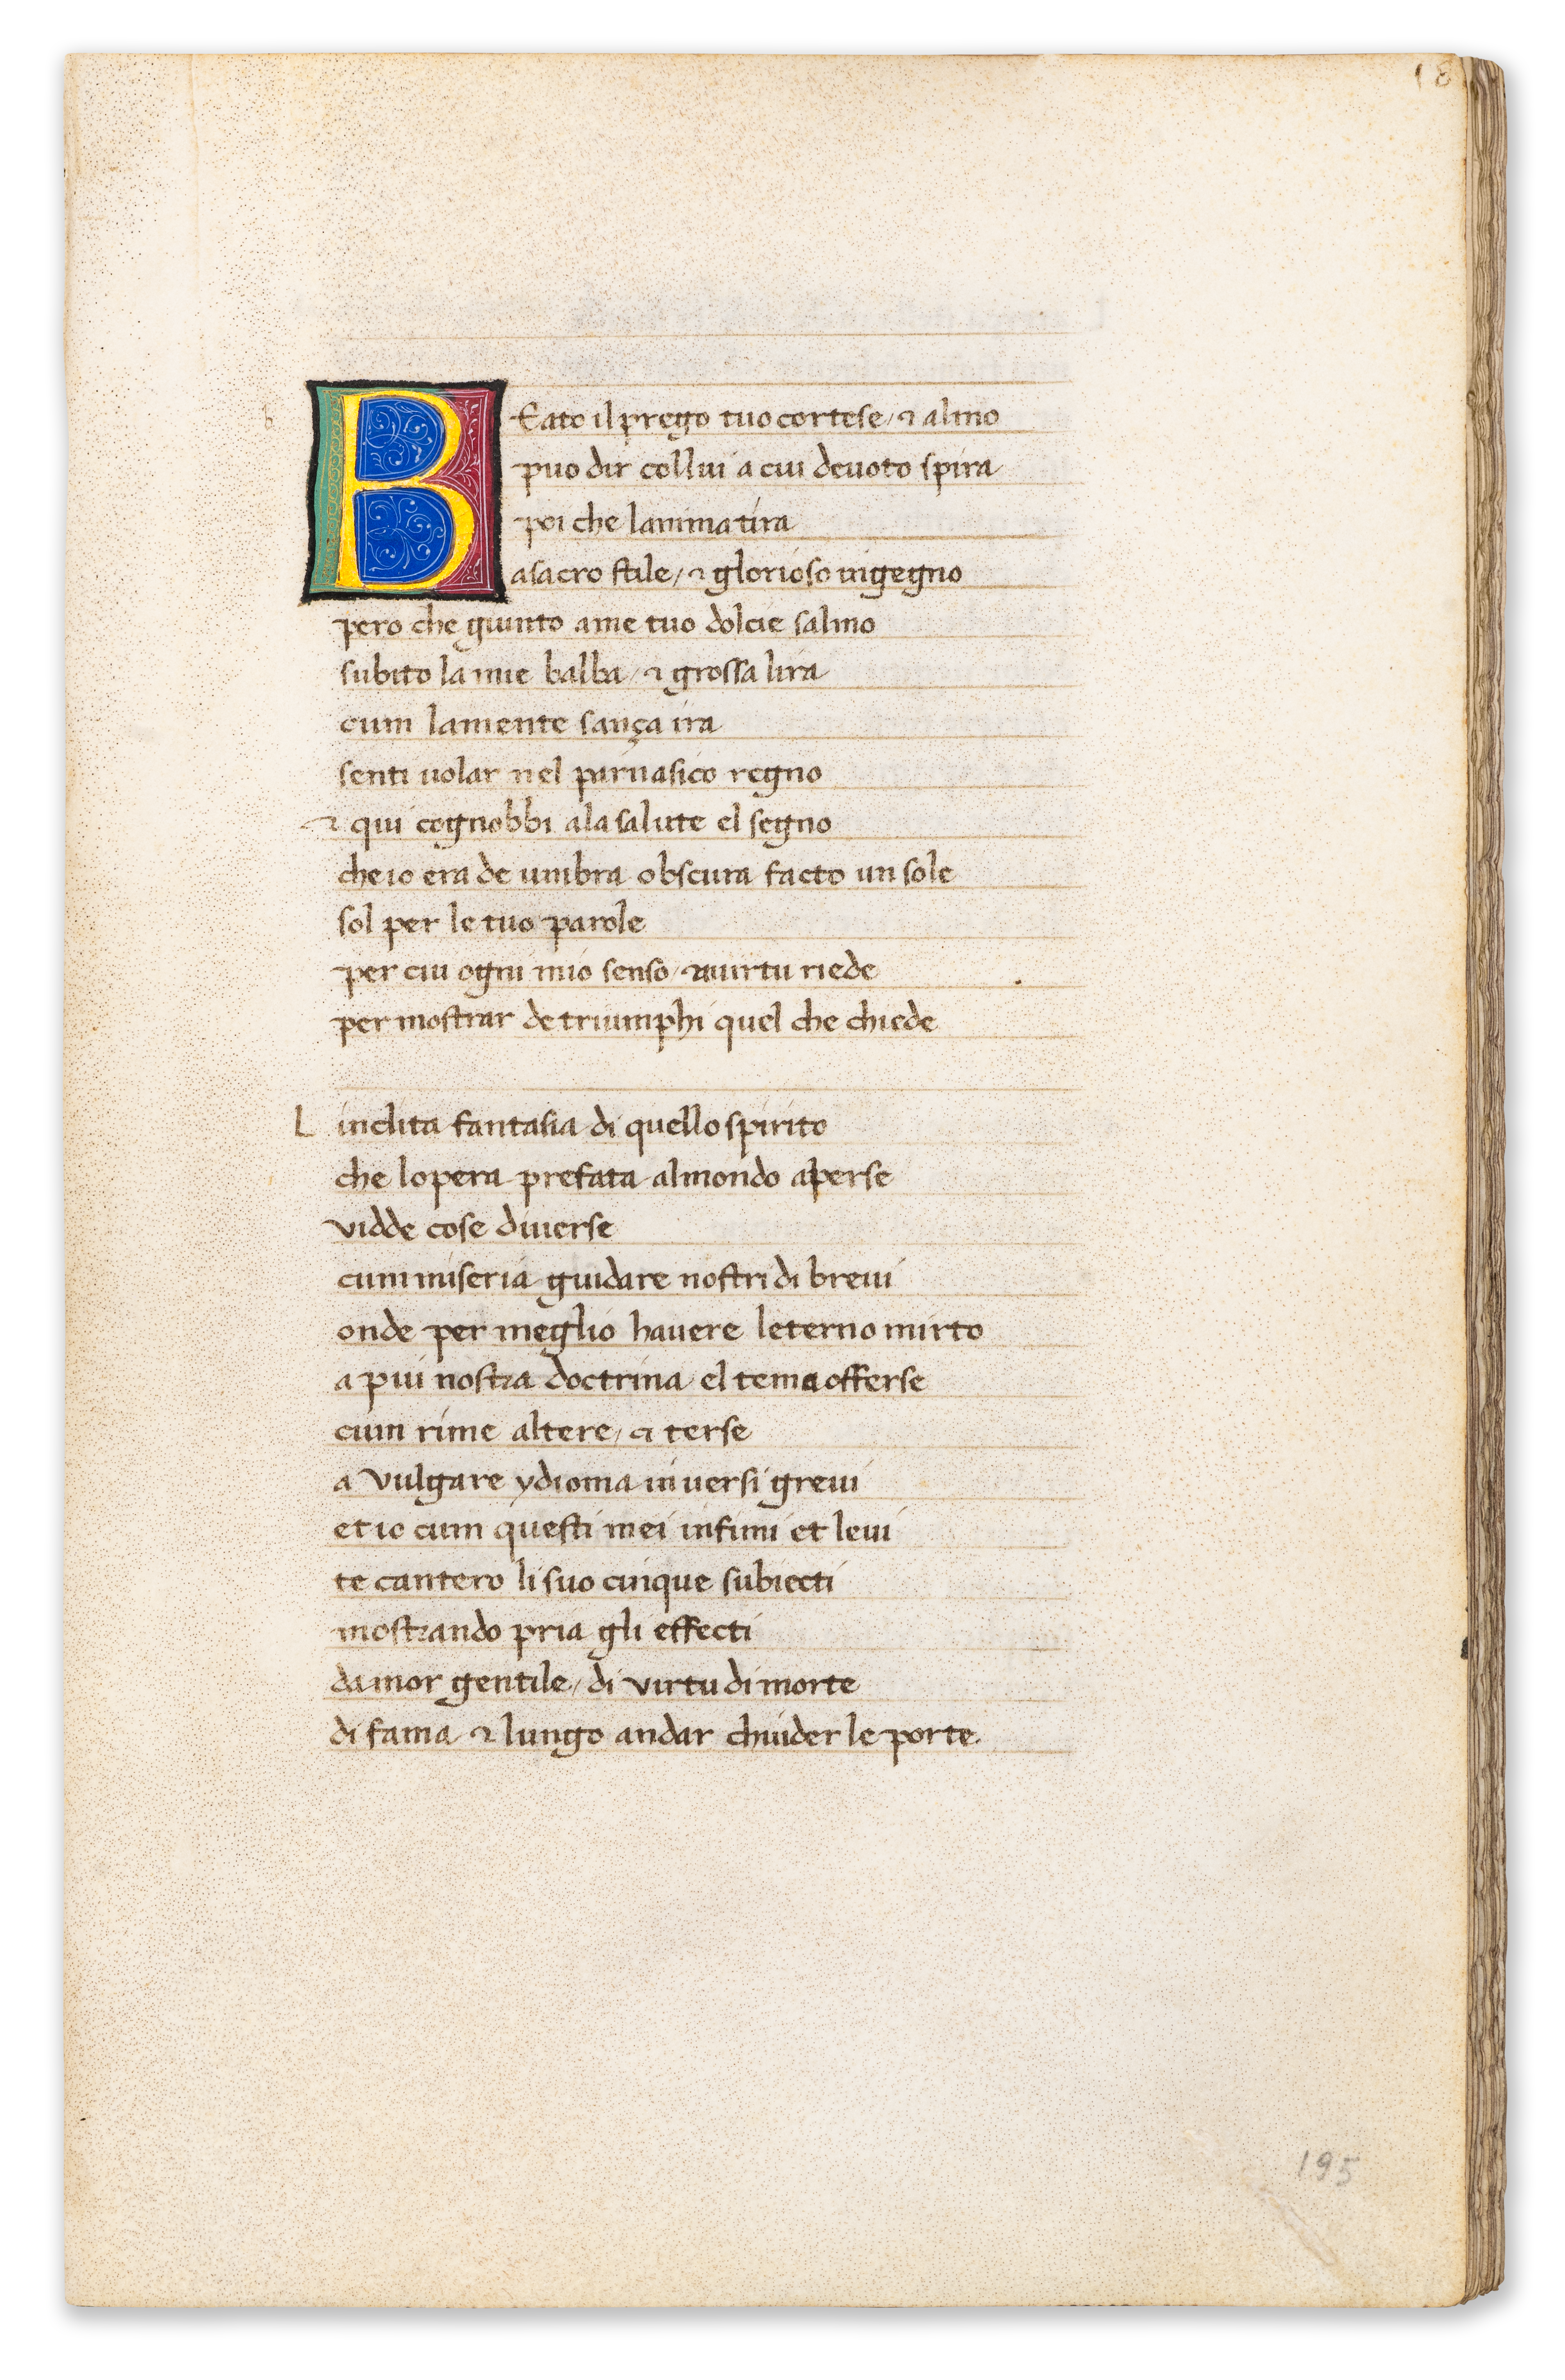 18
BEato il prego tuo cortese / ⁊ almo
puo dir collui a cui deuoto spira
poi che lanima tira
a sacro stile / ⁊ glorioso ingegno
pero che giunto a me tuo dolcie salmo
subito la mie balba / ⁊ grossa lira
cum la mente sança ira
senti uolar nel parnasico regno
⁊ qui cognobbi a la salute el segno
che io era de umbra obscura facto un sole
sol per le tuo parole
per cui ogni mio senso / ⁊ uirtu riede
per mostrar de triumphi quel che chiede
L inclita fantasia di quello spirito
che lopera prefata al mondo aperse
vidde cose diuerse
cum miseria guidare nostri di breui
onde per meglio hauere leterno mirto
a piu nostra doctrina el tema offerse
cum rime altere / ⁊ terse
a vulgare ydioma in uersi greui
et io cum questi mei infimi et leui
te cantero li suo cinque subiecti
mostrando pria gli effecti
damor gentile / di virtu di morte
di fama ⁊ lungo andar chiuder le porte.
195